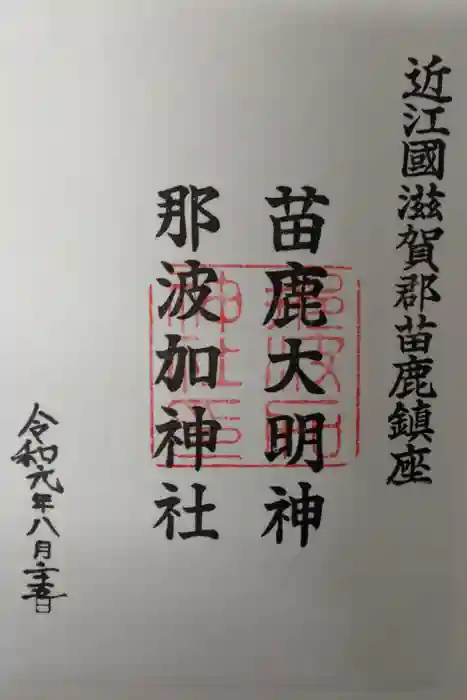 近江國滋賀郡苗鹿鎮座
苗鹿大明神
那波加神社
令和元年八月二十五日